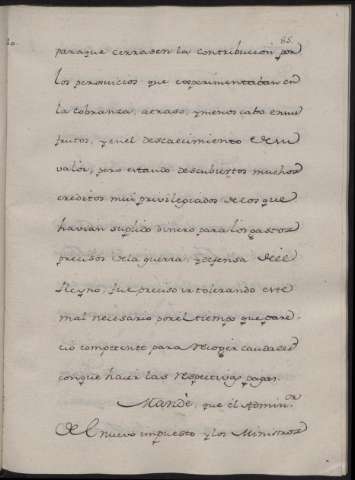 85.
paraque cerrasen la contribucion por
los perjuicios que experimentaban en
la cobranza, atraso, y menos cabo en sus
frutos, y en el descaecimiento de su
valòr, pero estando descubiertos muchos
creditos mui privilegiados de los que
havian suplido dinero para los gastos
precisos de la guerra, y defensa de el
Reyno, fue preciso ir tolerando este
mal necesario por el tiempo que pare-
ciò competente para recoger caudales
con que hacer las respectivas pagas.
Mandè, que el Admin.or
de el nuevo impuesto y los Ministros